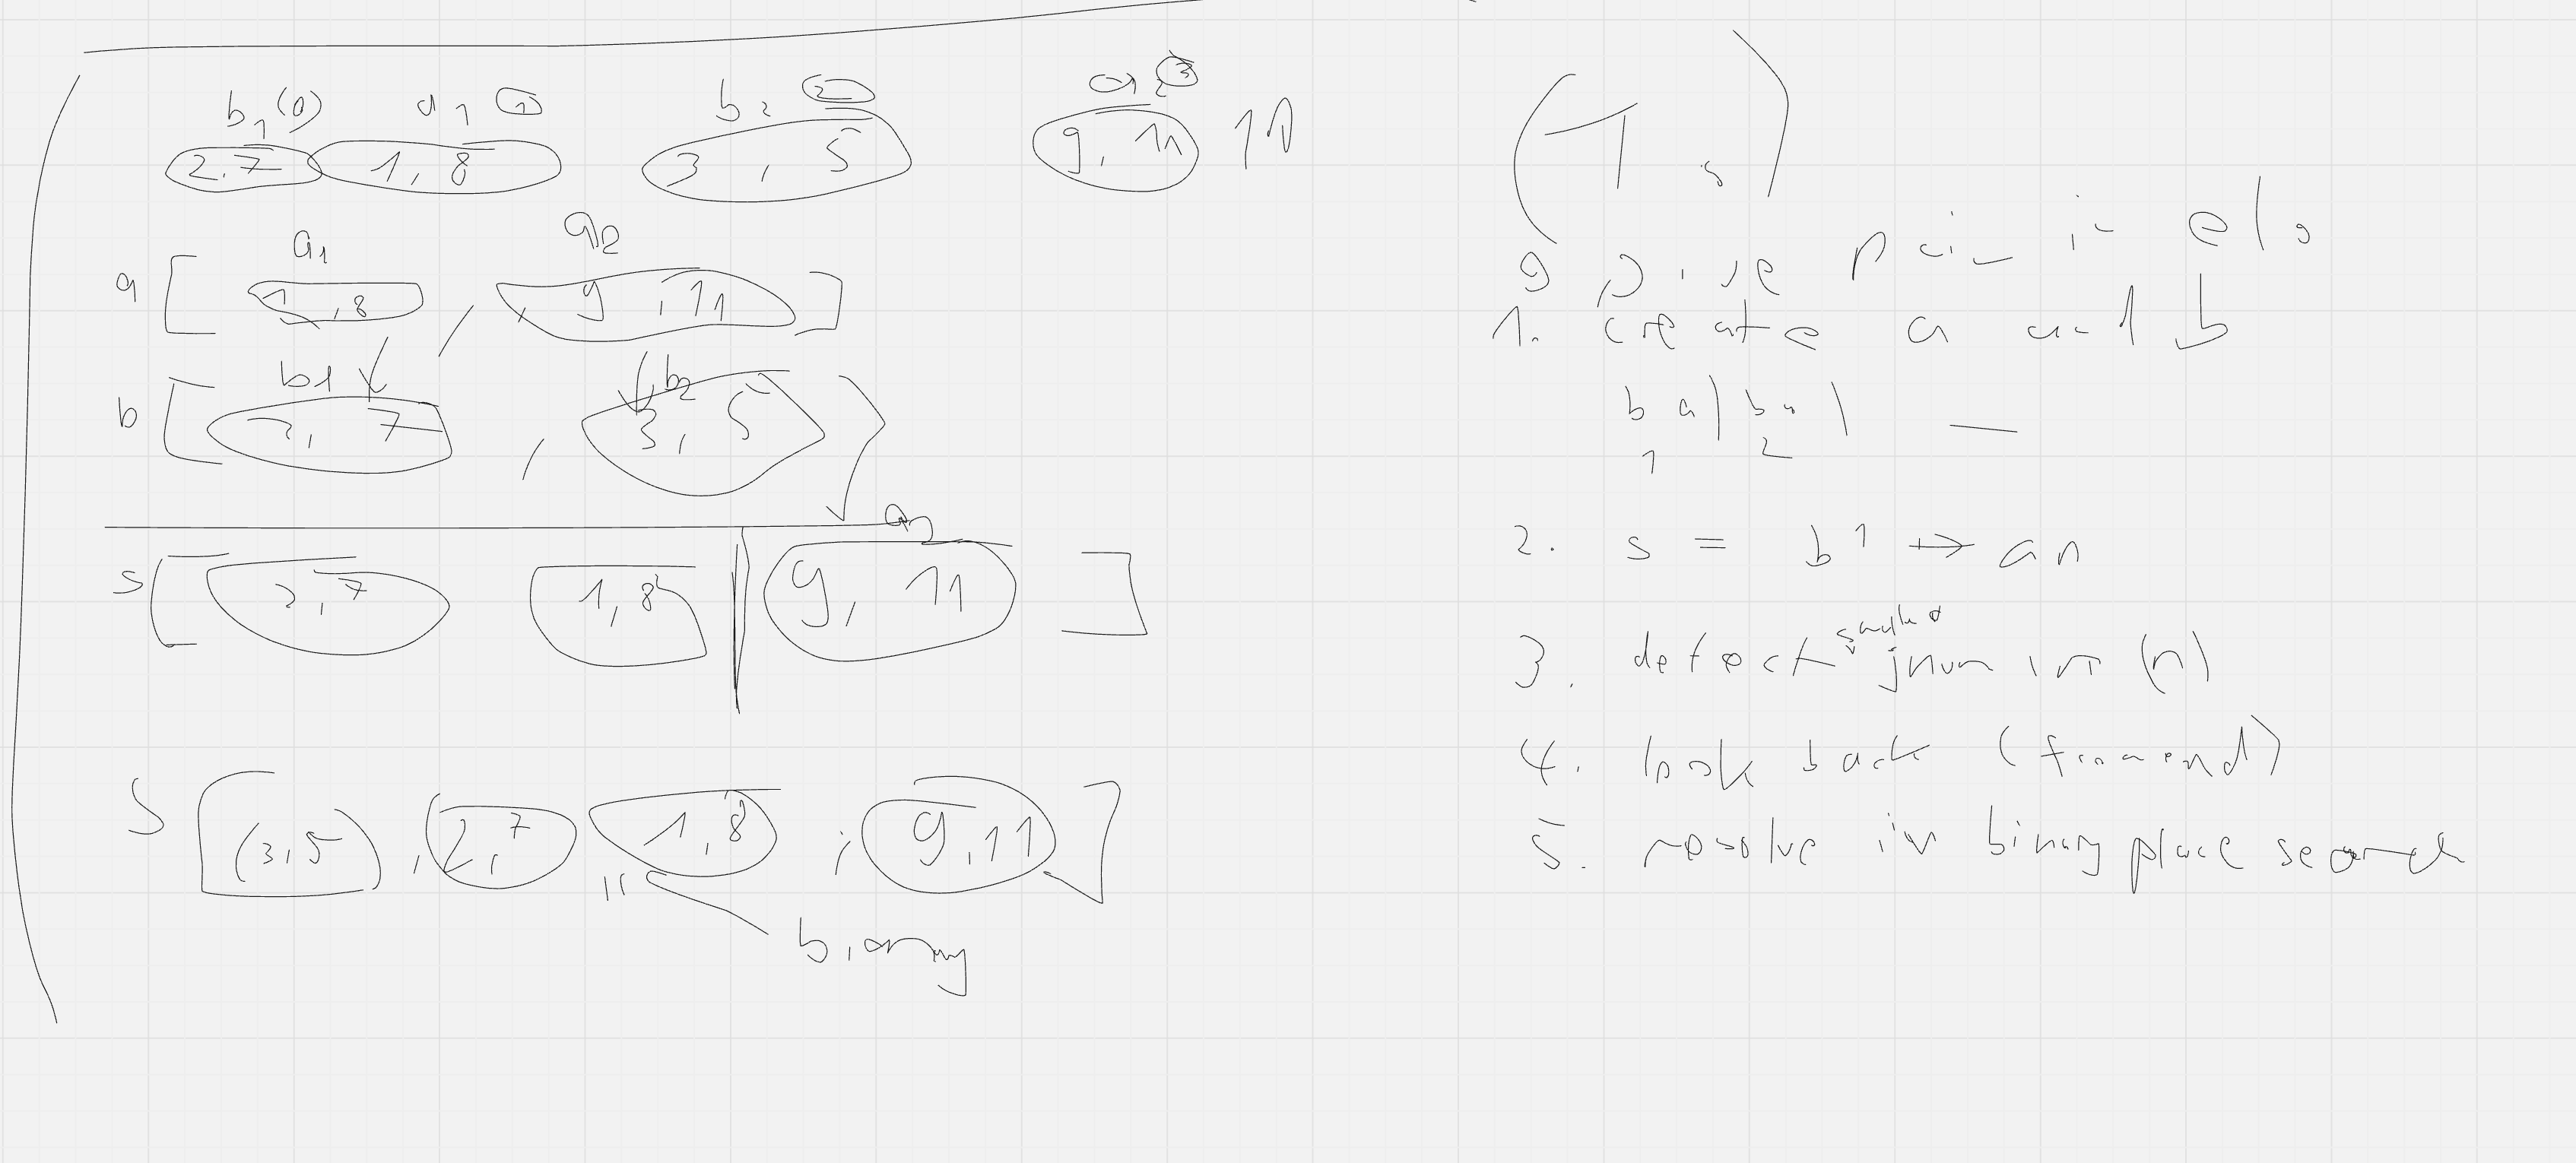 b1(0) a1 (1) b2 (2) a2 (3)
2,7 1,8 3, 5 9, 11
a1 a2
a [ 1,8 , 9, 11 ]
b1 b2
b [ 2, 7 , 3, 5 ]
an
s [ 2,7 1,8 | 9, 11 ]
S [ (3,5) , 2,7 1,8 , 9,11 ]
binary
1. create a and b
b a | b a |
1 2
2. s = b1 → an
3. detect jnum (n)
4. look back (from end)
5. resolve in binary place search